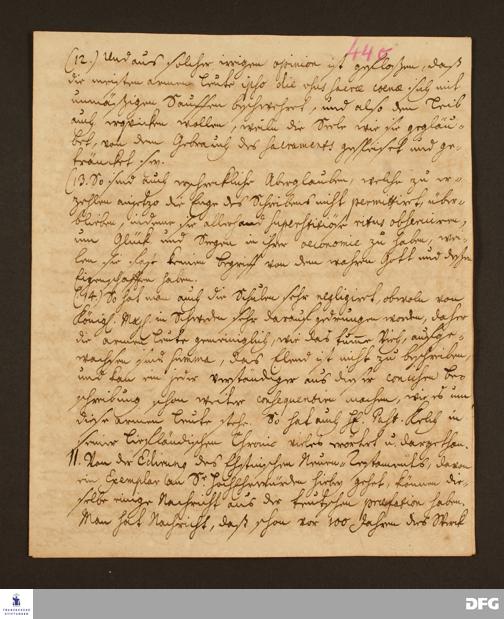 440
(12.) Und aus solcher irrigen opinion ist geflossen, daß
die meisten armen Leute ipso die usus sacrae coenae sich mit
unmäßigen Sauffen beschweret, und also den Leib
auch erquicken wollen, weiln die Seele wie sie gegläu-
bet, von dem Gebrauch des Sacraments gespeiset und ge-
träncket sey.
(13. So sind auch erschreckliche Aberglauben, welche zu er-
zehlen anjetzo die Enge des Schreibens nicht permittiret, über-
blieben, indeme sie allerhand superstitiose ritus observiren,
um Glück und Seegen in ihrer oeconomie zu haben, wei-
len sie keinen Begriff von dem wahren Gott und deßen
Eigenschafften haben.
(14.) So hat man auch die Schulen sehr negligiret, obwoln von
Königl. May. in Schweden sehr darauf gedrungen worden, daher
die armen Leute gemeiniglich, wie das tumme Vieh, aufge-
wachsen sind, das Elend ist nicht zu beschreiben,
und kan ein jeder verständiger aus dieser Be-
schreibung schon weiter consequentien machen, wie es um
diese armen Leute stehe. So hat auch H. Past. Kelch in
seiner Liefländischen Chronic vieles dargethan.
11. Von der Edirung des Ehstnischen Neuen-Testaments, davon
ein Exemplar an Sr Hochehrwürden hierbey gehet, können die-
selbe einige Nachricht aus der teutschen praefation haben.
Man hat Nachricht, daß schon vor 100 Jahren dies Werk
FRANCKESCHE STIFTUNGEN
DFG